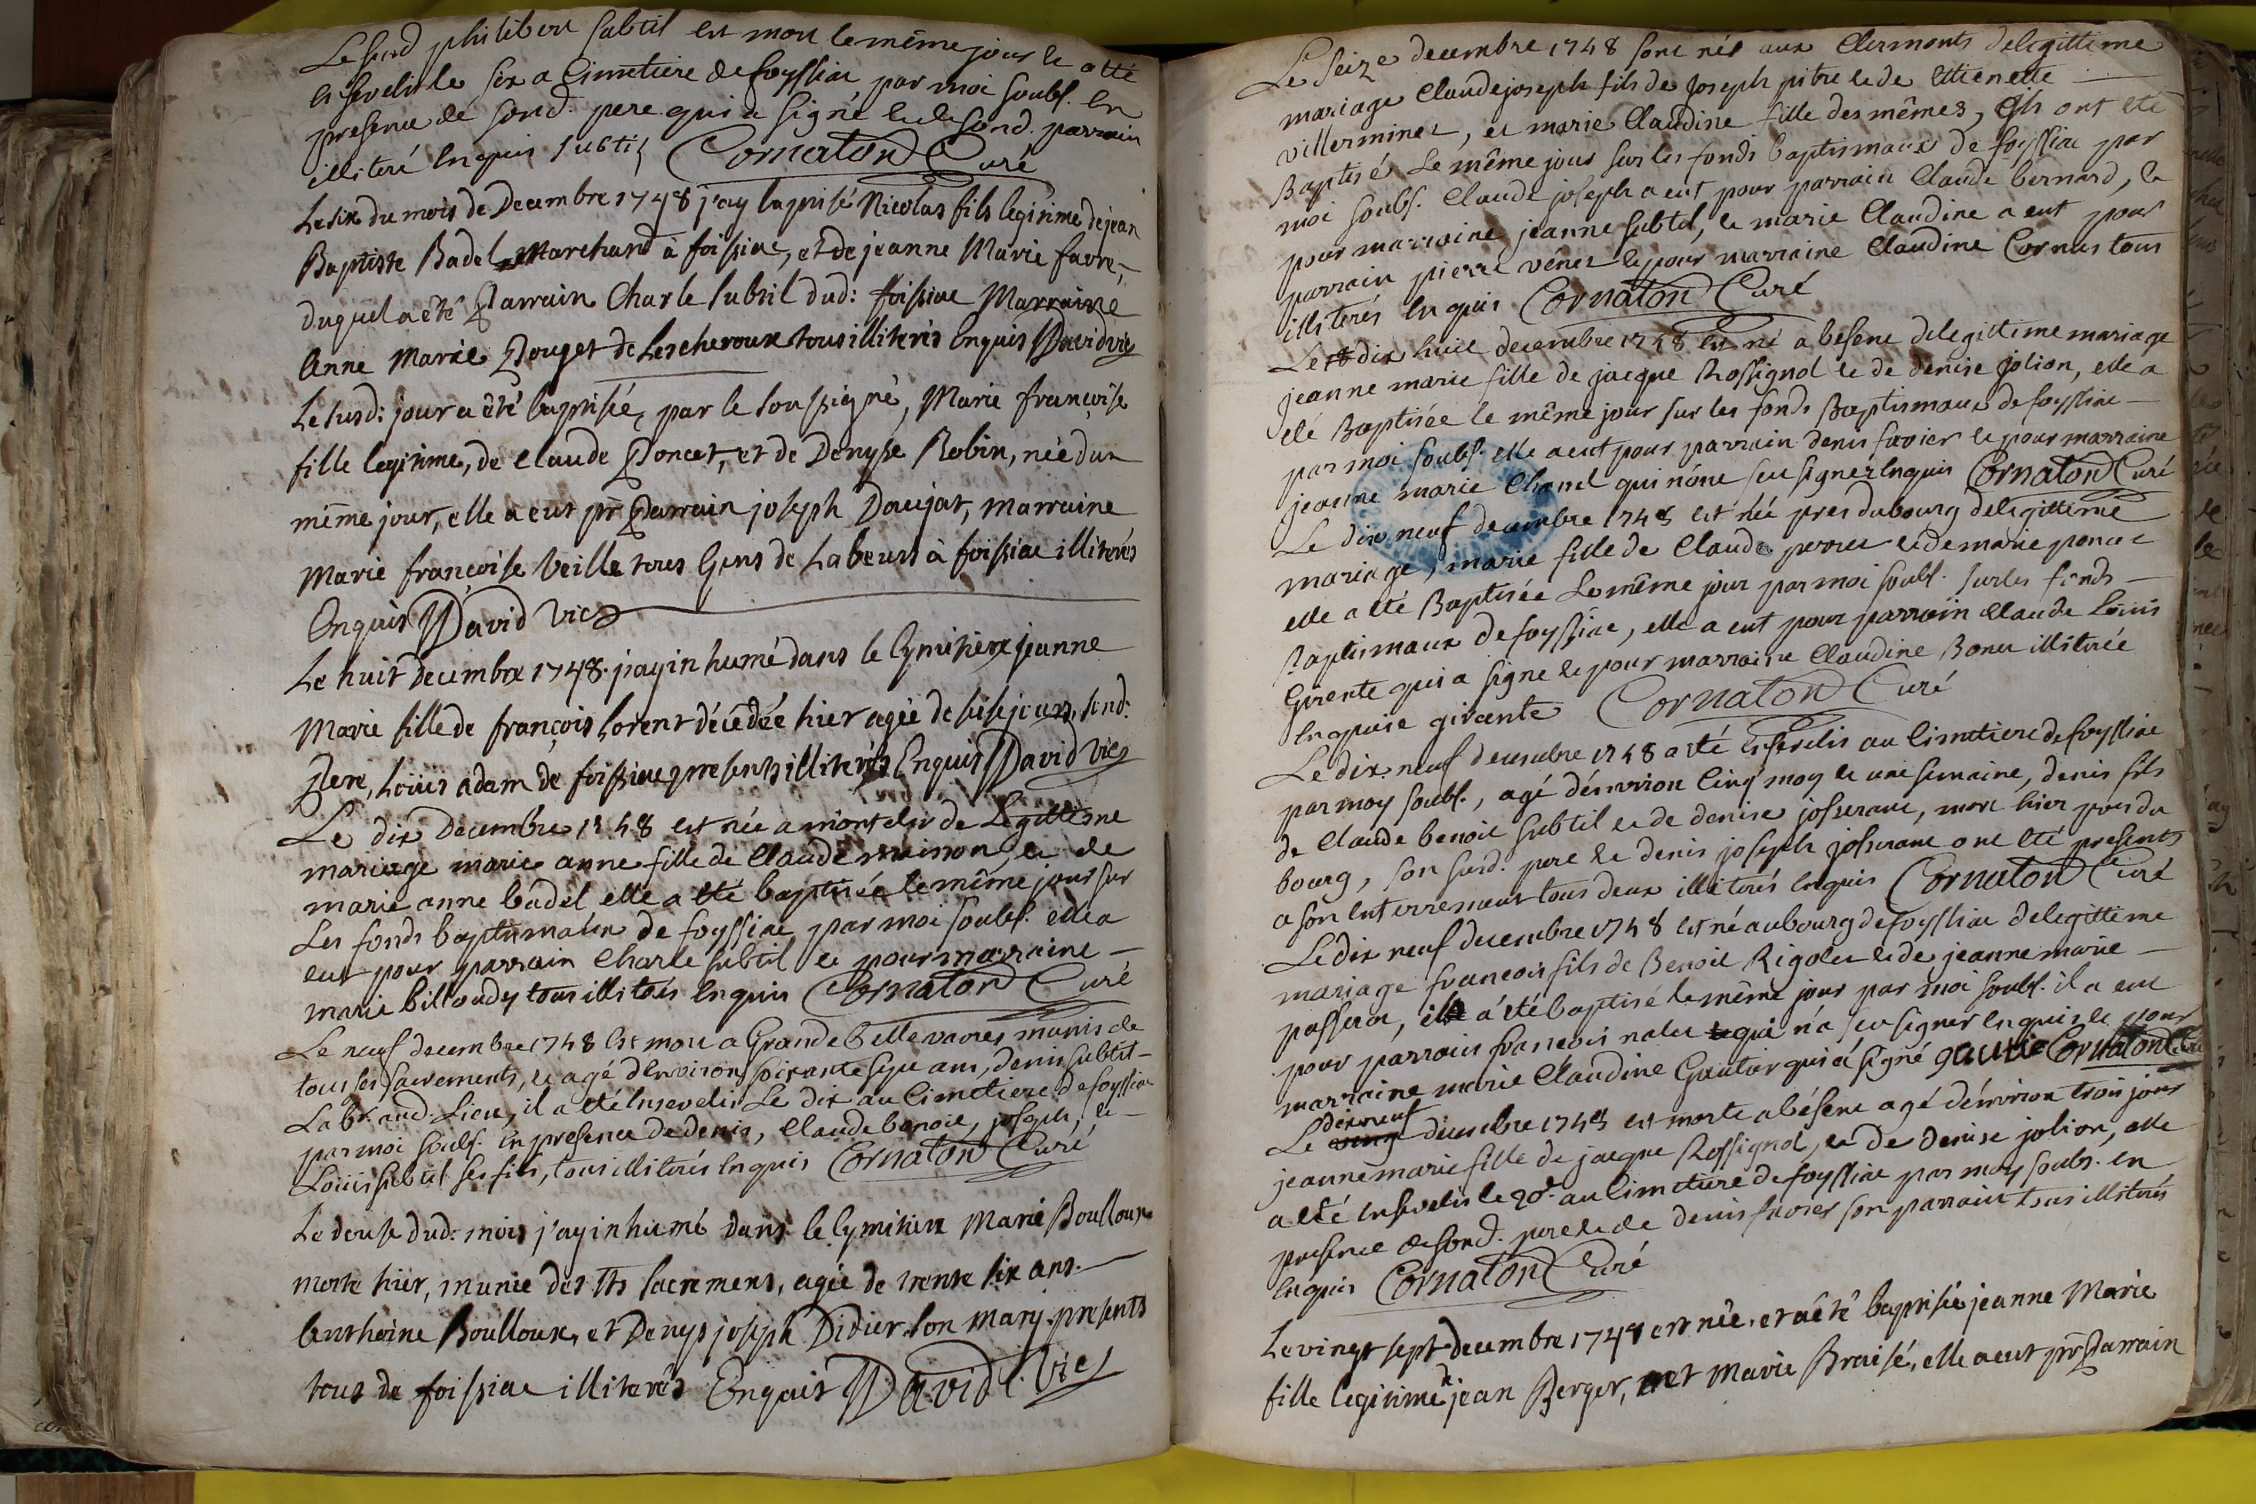 Le susd philibert subtil est mort le même jour et a eté
ensevelis le six a Cimetiere de foyssiac, par moi soubs. en
presence de sond. pere qui a signé et de sond. parrain
illiteré enquis subtil Cornaton Curé
Le six du mois de Decembre 1748 j'ay baptisé Nicolas fils legitime de jean
Baptiste Badel Marchand à foissiac, et de jeanne Marie favre,
duquel a êté Parrain Charle Subtil dud: foissiac Marraine
Anne Marie Pouget de Lescheroux tous illiterés Enquis David vic
Le susd: jour a êté baptisée, par le soussigné, Marie françoise
fille legitime, de Claude Poncet, et de Denyse Robin, née du
même jour, elle a eut pr Parrain joseph Daujat, marraine
Marie françoise Veille tous Gens de Labeurs à foissiac illiterés
Enquis David Vic
Le huit Decembre 1748. j'ay inhumé dans le Cymitiere jeanne
Marie fille de françois Lorent décédée hier agée de jours, sond:
Pere, Loüis adam de foissiac presents illiterés Enquis David Vic
Le dix Decembre 1748 est née a montelir de Legittime
mariage marie anne fille de Claude et de
marie anne badel elle a eté baptisée le même jour sur
Les fonds baptismaux de foyssiac par moi soubs. elle a
eut pour parrain Charle subtil et pour marraine
marie billoudy tous illiterés enquis Cornaton Curé
Le neuf decembre 1748 est mort a Grande belle vavres munis de
tous ses sacrements, et agé d'environ soixante sept ans, denis subtil
Labr. aud. Lieu, il a eté ensevelis Le dix au Cimetiere de foyssiac
par moi soubs. en presence de denis, Claude benoit, joseph, et
Loüis subtil ses fils, tous illiterés enquis Cornaton Curé
Le douse dud: mois j'ay inhumé dans le Cymitiere Marie Boulloux
morte hier, munie des Sts sacremens, agée de trente six ans.
Anthoine Boulloux, et Denys joseph Didier son mary presents
tous de foissiac illiterés Enquis David Vic
Le seize decembre 1748 sont nés aux Clermonts de legittime
mariage Claude joseph fils de joseph pitre et de Ettienette
villerminet, et marie Claudine fille des mêmes, ils ont eté
Baptisés Le même jour sur les fonds baptismaux de foyssiac par
moi soubs. Claude joseph a eut pour parrain Claude bernard, et
pour marraine jeanne subtil, et marie Claudine a eut pour
parrain pierre vênet et pour marraine Claudine Cornus tous
illiterés enquis Cornaton Curé
Le dix huit decembre 1748 est né a besene de legittime mariage
jeanne marie fille de jacque Rossignol et de denise jolion, elle a
eté Baptisée le même jour sur les fonds Baptismaux de foyssiac
par moi soubs. elle a eut pour parrain denis favier et pour marraine
jeanne marie Chanel qui n'ont seu signer enquis Cornaton Curé
Le dix neuf decembre 1748 est née pres du bourg de legittime
mariage, marie fille de Claude perret et de marie poncet
elle a eté Baptisée Le même jour par moi soubs. sur les fonds
Baptismaux de foyssiac, elle a eut pour parrain Claude Louis
Girente qui a signé et pour marraine Claudine Bonet illiterée
enquise girante Cornaton Curé
Le dix neuf decembre 1748 a eté ensevelis au Cimetiere de foyssiac
par moy soubs., agé d'environ Cinq moy et une semaine, denis fils
de Claude benoit subtil et de denise josserant, mort hier pres du
bourg, son susd. pere et denis joseph josserant ont eté presents
a son enterrement tous deux illiterés enquis Cornaton Curé
Le dix neuf decembre 1748 est né au bourg de foyssiac de legittime
mariage francois fils de Benoit Rigolet et de jeanne marie
passerat, il a été baptisé le même jour par moi soubs. il a eut
pour parrain francois nalet qui n'a seu signer enquis et pour
marraine marie Claudine Gautier qui a signé gautie Cornaton Curé
Le dixneuf decembre 1748 est morte a bésene agé d'environ trois jours
jeanne marie fille de jacque Rossignol, et de denise jolion, elle
a eté ensevelis le 20e. au Cimetiere de foyssiac par moy soubs. en
presence de sond. pere et de denis favier son parrain tous illiterés
enquis Cornaton Curé
Le vingt sept Decembre 1748 est née, et a êté baptisée jeanne Marie
fille legitime de jean Berger, et Marie Braisé, elle a eut pr Parrain